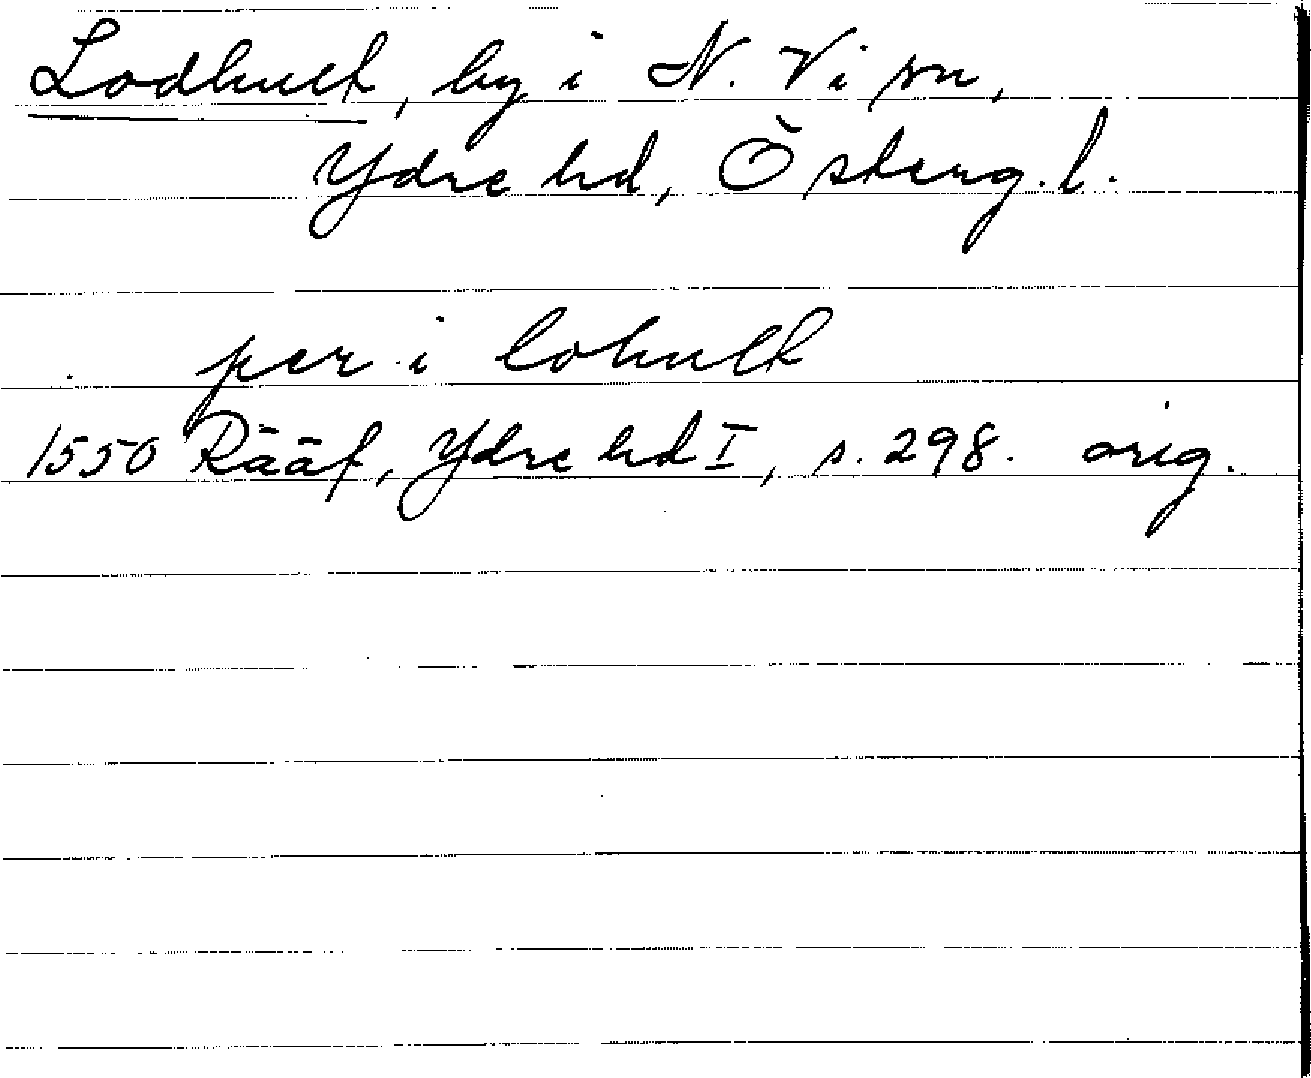 Lodhult, by i N. Vi sn,
Ydre hd, Österg. l.
per i lohult
1550 Rääf, Ydre hd I, s. 298. orig.